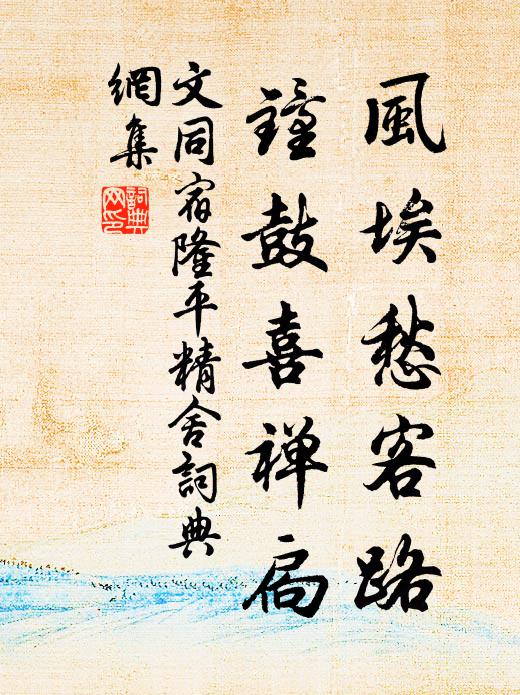 風埃愁客路
鐘鼓喜禅扃
文同宿隆平精舍詞典
網集
詞典網印